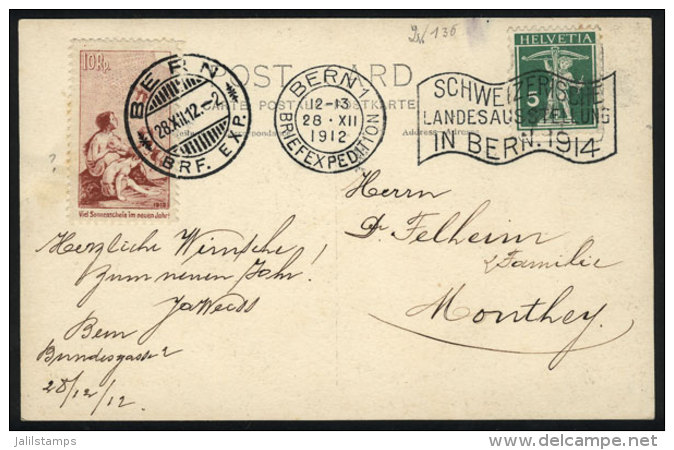 130
10 Rp.
Viel Sonnenschein im neuen Jahr!
1912
BERN
28.XII.12.-2
BRF. EXP.
POST CARD
CARTE POSTALE POSTKARTE
Address - Adresse
BERN 1
12-13
28·XII
1912
BRIEFEXPEDITION
HELVETIA
5
SCHWEIZERISCHE
LANDESAUSSTELLUNG
IN BERN. 1914
?
Herrn
Dr Felheim
& Familie
Monthey.
Herzliche Wünsche
zum neuen Jahr!
JaWeiss
Bern
Bundesgasse 2
28/12/12
jalilstamps
http://www.delcampe.net